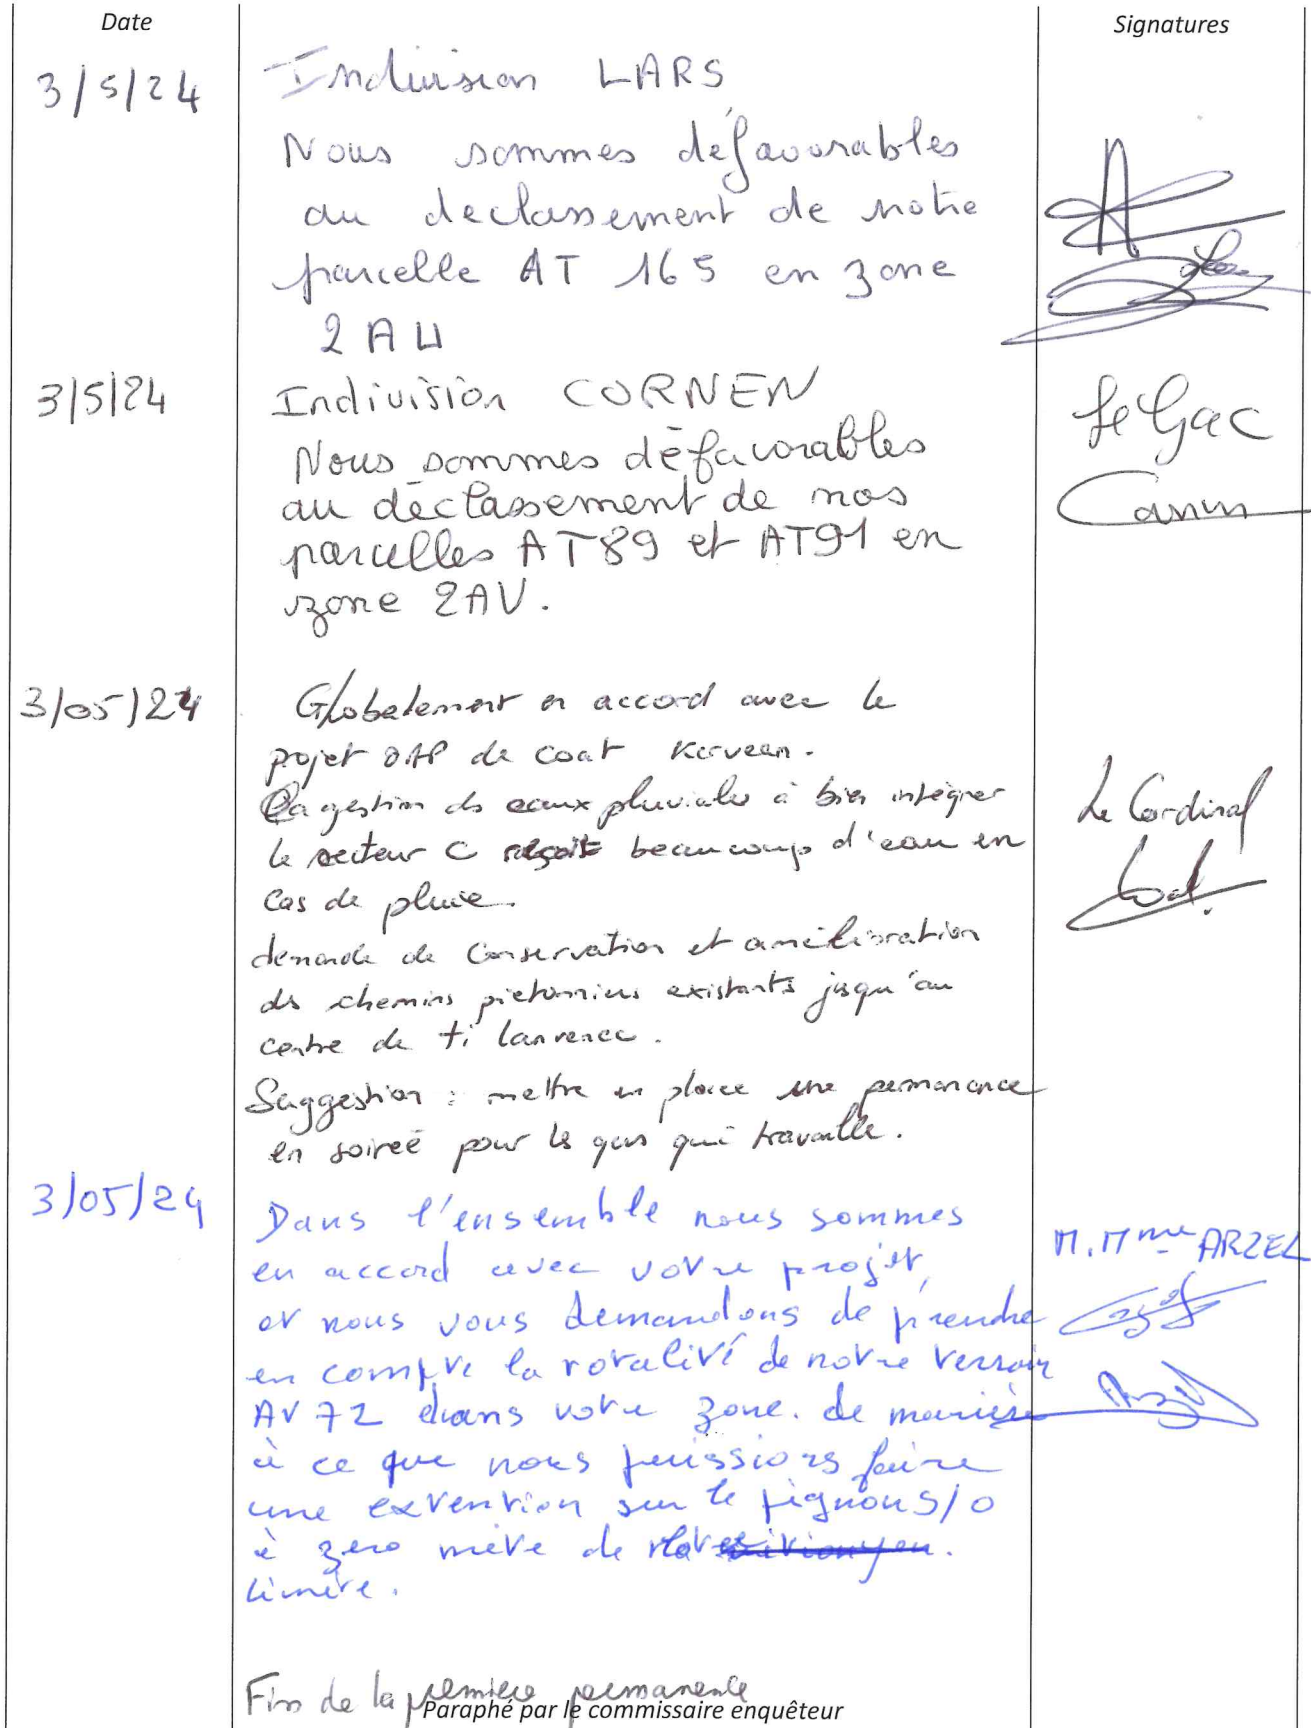 Date
Signatures
3/5/24
Indivision LARS
Nous sommes défavorables
au declassement de notre
parcelle AT 165 en zone
2AU
3/5/24
Indivision CORNEN
Le Gac
Nous sommes défavorables
au déclassement de nos
parcelles AT89 et AT91 en
zone 2AV.
3/05/24
Globalement en accord avec le
projet OAP de Coat Kerveen.
La gestion des eaux pluviales à bien intégrer
Le Cardinal
le secteur C reçoit beaucoup d'eau en
cas de pluie.
demande de conservation et amélioration
des chemins pietonniers existants jusqu'au
centre de ti lanrence.
Suggestion : mettre en place une permanance
en soireé pour les gens qui travaille.
3/05/24
Dans l'ensemble nous sommes
M. Mme ARZEL
en accord avec votre projet,
et nous vous demandons de prendre
en compte la totalité de notre terrain
AV 72 dans votre zone. de manière
à ce que nous puissions faire
une extention sur le pignon S/O
à zero mètre de
limite.
Fin de la première permanence
Paraphé par le commissaire enquêteur